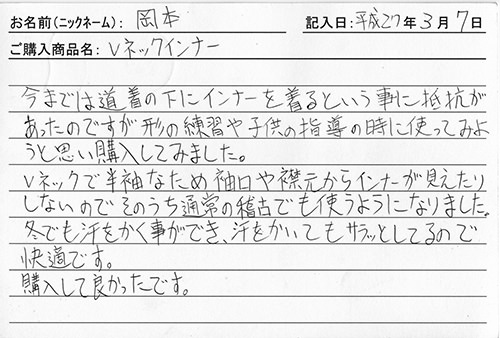 お名前(ニックネーム): 岡本 記入日: 平成27年3月7日
ご購入商品名: Vネックインナー
今までは道着の下にインナーを着るという事に抵抗が
あったのですが形の練習や子供の指導の時に使ってみよ
うと思い購入してみました。
Vネックで半袖なため袖口や襟元からインナーが見えたり
しないのでそのうち通常の稽古でも使うようになりました。
冬でも汗をかく事ができ、汗をかいてもサラッとしてるので
快適です。
購入して良かったです。